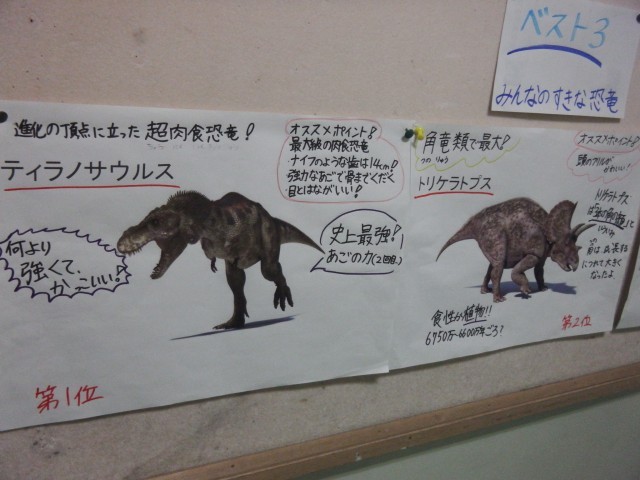 ベスト3
みんなのすきな恐竜
進化の頂点に立った 超肉食恐竜!
ティラノサウルス
オススメポイント!
最大級の肉食恐竜
ナイフのような歯は14cm!
強力なあごで骨までくだく
目とはながいい!
何より
強くて、
かっこいい!
史上最強!
あごの力(2回目)
第1位
角竜類で最大!
つの りゅう
トリケラトプス
オススメポイント!
頭のフリルが
かわいい!
トリケラトプス
は
角は 成長する
につれて大きく
なったよ
食性が植物!!
6750万~6600万年ごろ?
第2位